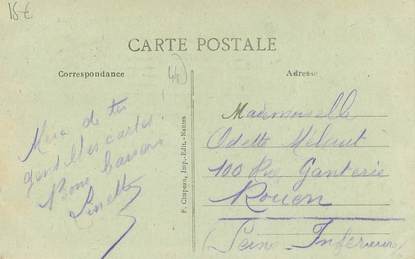 15€
CARTE POSTALE
Correspondance
(44)
Adresse
Merci de tes
gentilles cartes.
Bons baisers
Ginette
F. Chapeau, Imp.-Edit.-Nantes
Mademoiselle
Odette
100 Rue Ganterie
Rouen
(Seine Inférieure)